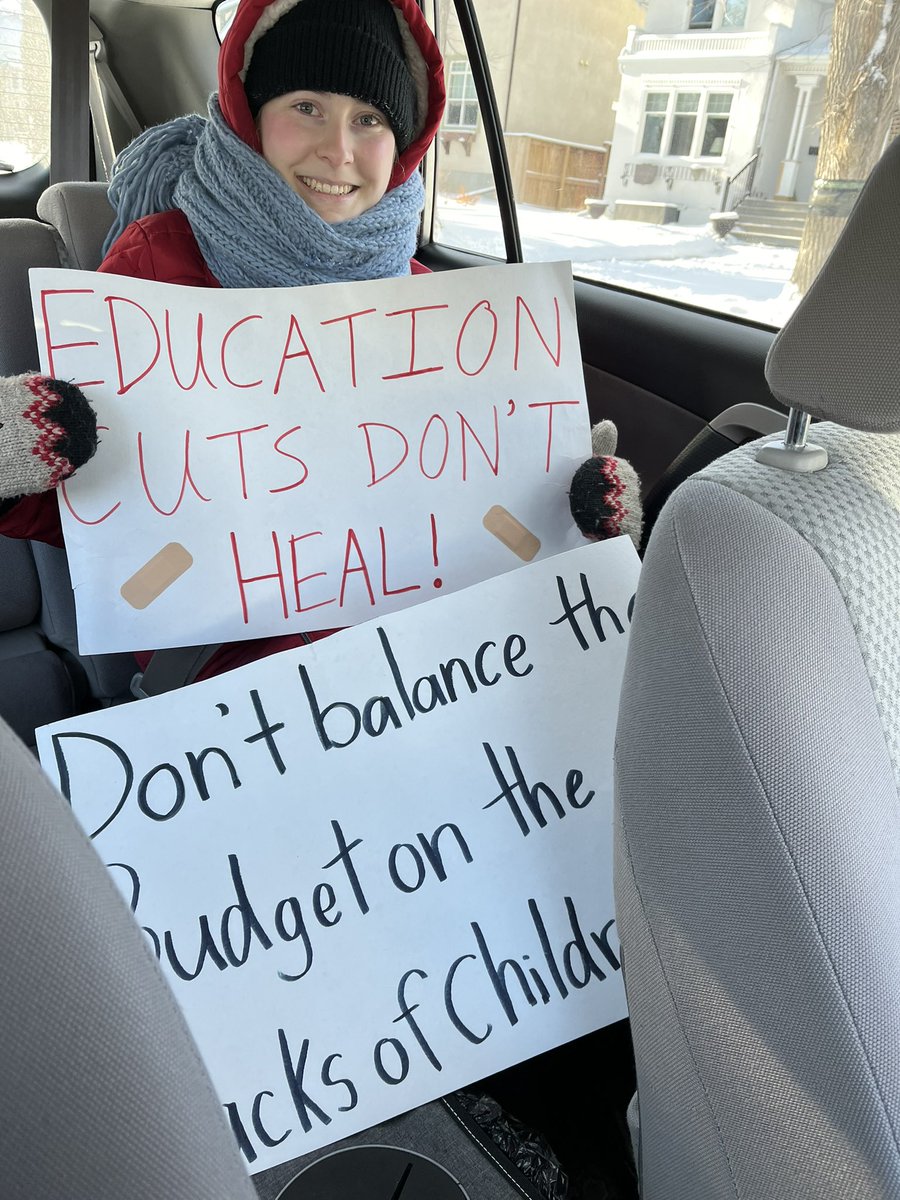 EDUCATION
CUTS DON'T
HEAL!
Don't balance the
Budget on the
backs of Children